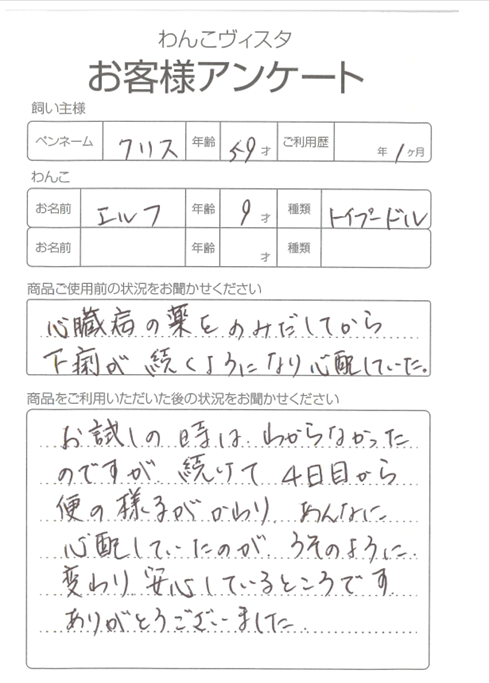 わんこヴィスタ
お客様アンケート
飼い主様
ペンネーム クリス 年齢 59才 ご利用歴 年 1ヶ月
わんこ
お名前 エルフ 年齢 9才 種類 トイプードル
お名前 年齢 才 種類
商品ご使用前の状況をお聞かせください
心臓病の薬をのみだしてから
下痢が続くようになり心配していた。
商品をご利用いただいた後の状況をお聞かせください
お試しの時は わからなかった
のですが 続けて 4日目から
便の様子がかわり あんなに
心配していたのが、うそのように
変わり 安心しているところです
ありがとうございました